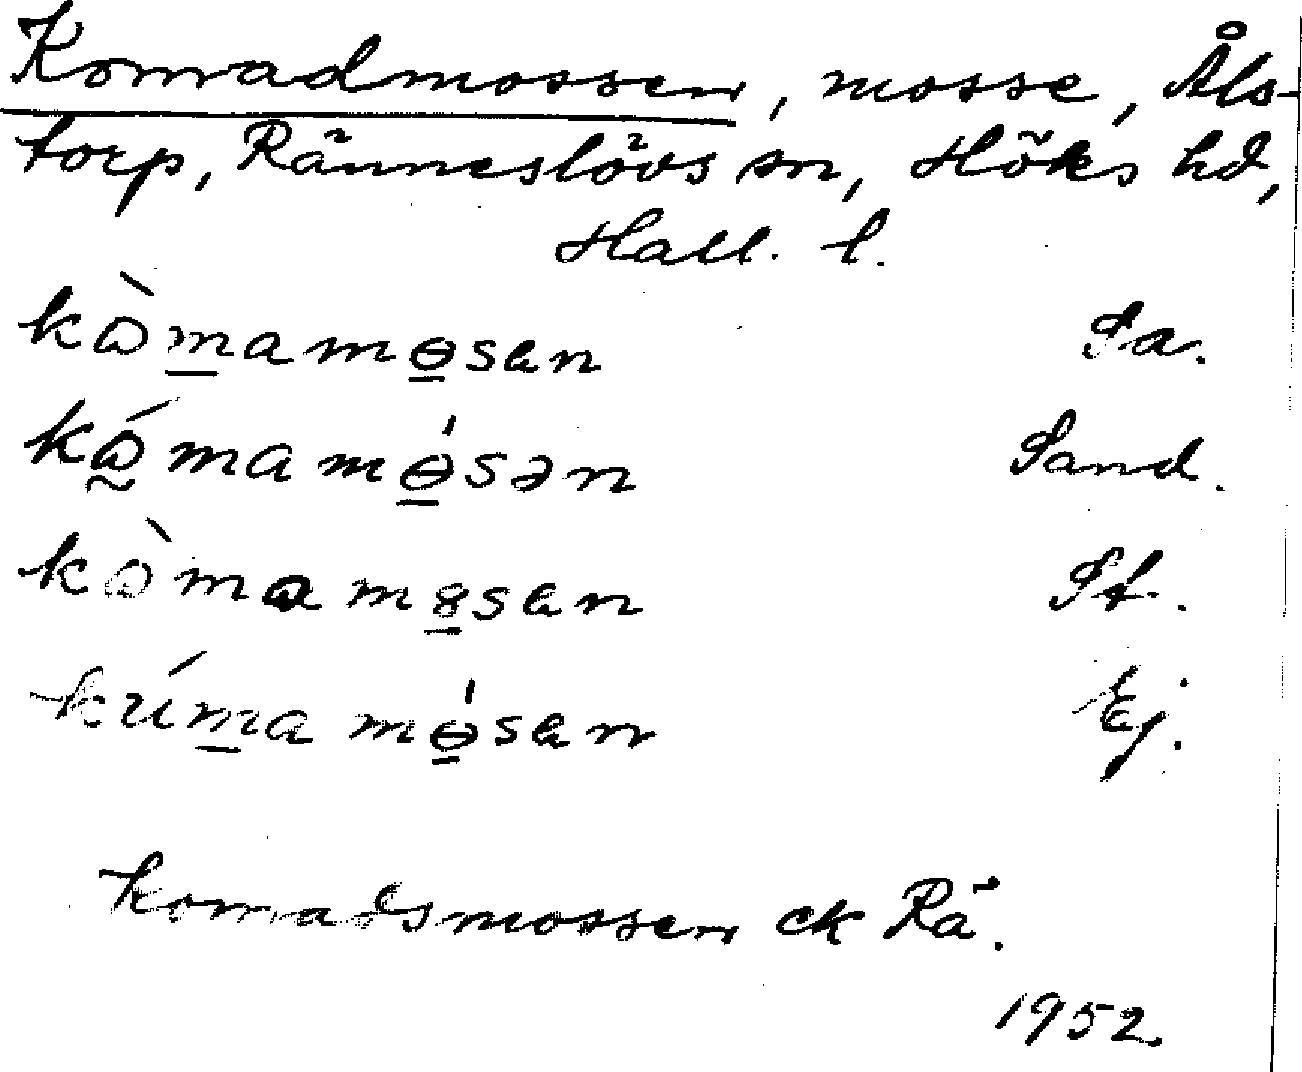 Komradmossen, mosse, Åls-
torp, Ränneslövs sn, Höks hd,
Hall. l.
kɷ̀mamɵsen Sa.
kɷ́mamɵ́sən Sand.
kɷ̀mamɵsen St.
kúmamɵ́sen Ej.
Komradsmossen ck Rä.
1952